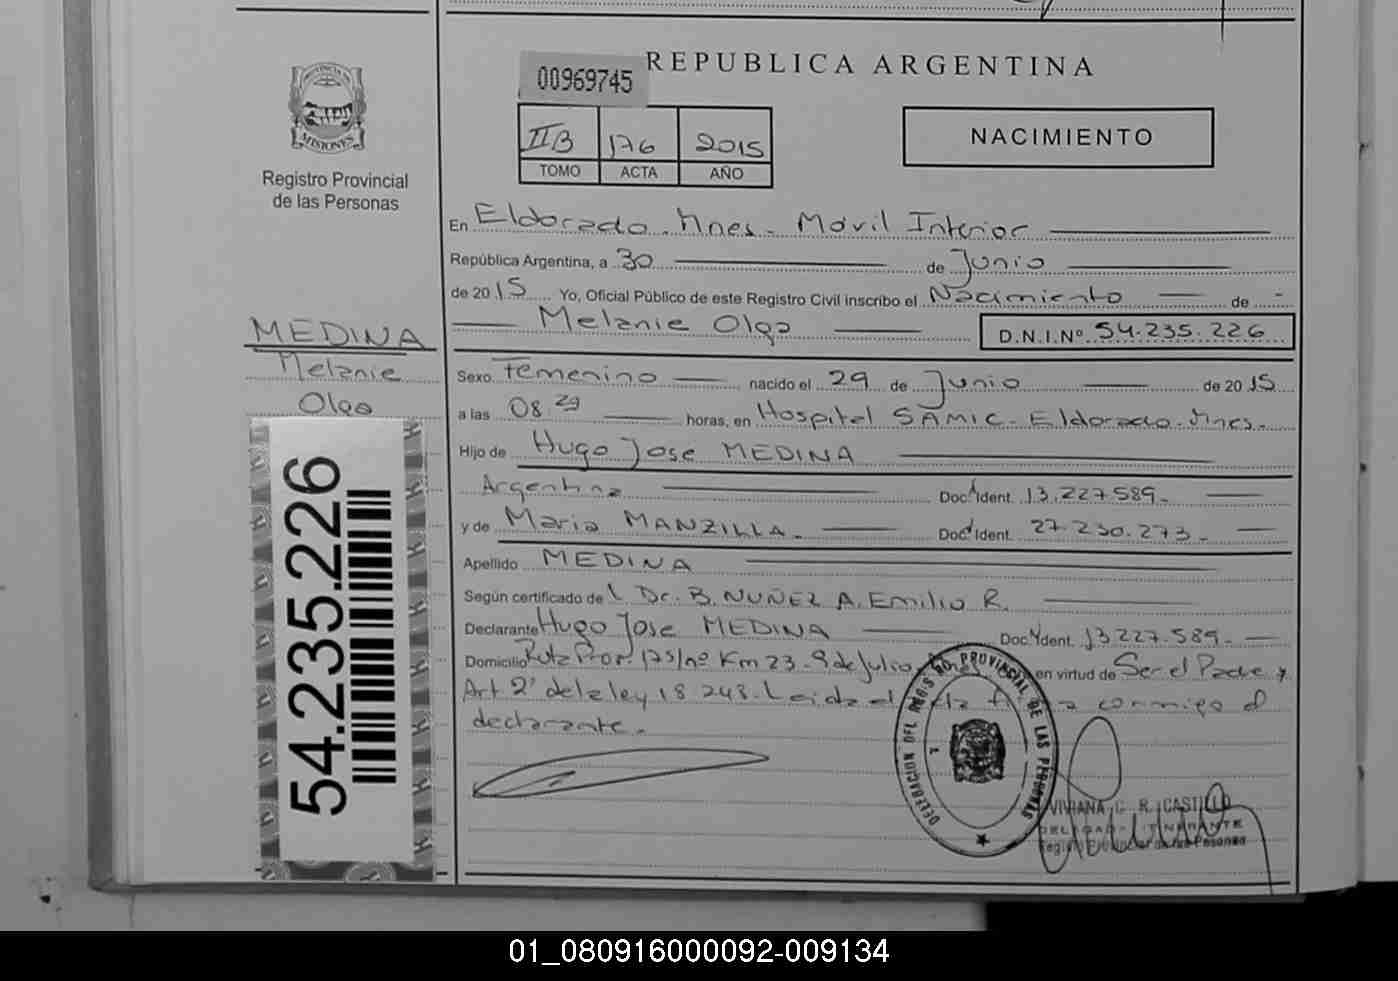 REPUBLICA ARGENTINA
00969745
PROVINCIA DE
MISIONES
Registro Provincial
de las Personas
IIB 176 2015
TOMO ACTA AÑO
NACIMIENTO
En Eldorado. Mnes. Móvil Interior
República Argentina, a 30 de Junio
de 2015 Yo, Oficial Público de este Registro Civil inscribo el Nacimiento de
Melanie Olga D.N.I.Nº 54.235.226
MEDINA
Melanie
Olga
Sexo Femenino nacido el 29 de Junio de 2015
a las 08.29 horas, en Hospital SAMIC. Eldorado. Mnes.
Hijo de Hugo Jose MEDINA
Argentina Doc. Ident. 13.227.589.
y de Maria MANZILLA. Doc. Ident. 27.230.273.
Apellido MEDINA
Según certificado de Dr. B. NUÑEZ A. Emilio R.
Declarante Hugo Jose MEDINA Doc. Ident. 13.227.589.
Domicilio Ruta Prov. 17 s/nº Km 23. 9 de Julio en virtud de Ser el Padre y
Art 2º de la ley 18.248. Leida el conmigo el
declarante.
54.235.226
DELEGACION DEL REGISTRO PROVINCIAL DE LAS PERSONAS
VIVIANA C. R. CASTILLO
DELEGADA ITINERANTE
Registro Provincial de las Personas
01_080916000092-009134